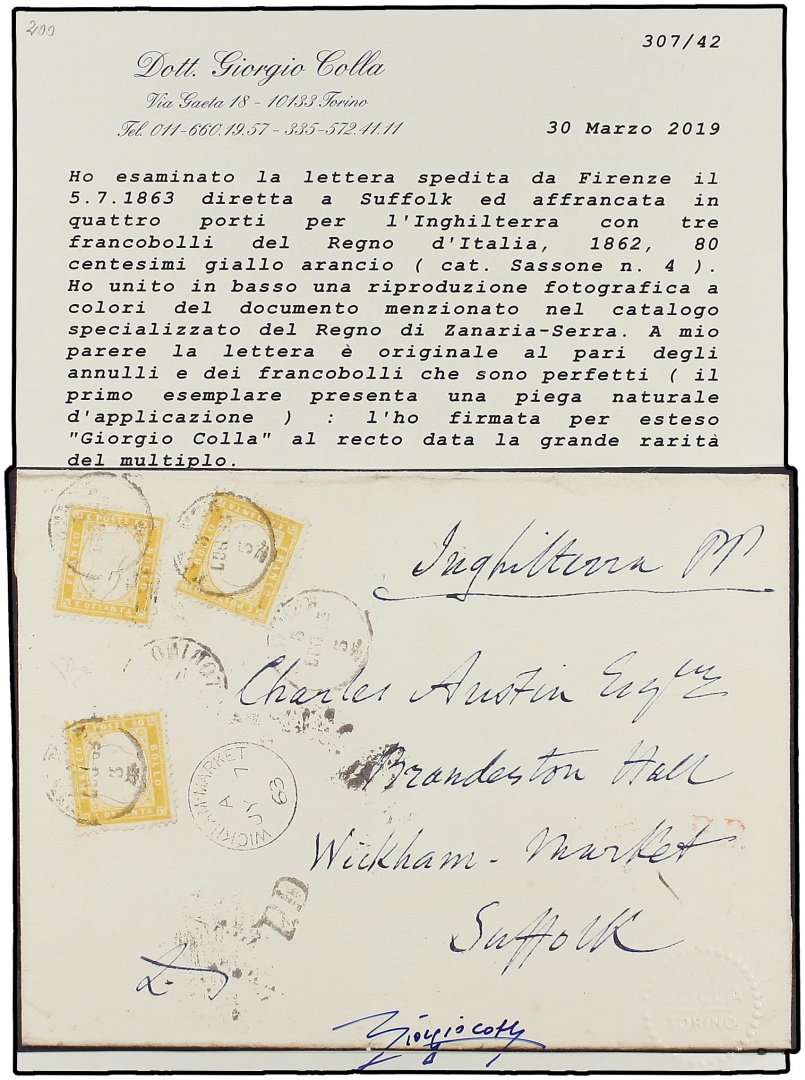 200
307/42
Dott. Giorgio Colla
Via Gaeta 18 - 10133 Torino
Tel. 011-660.19.57 - 335-572.41.11
30 Marzo 2019
Ho esaminato la lettera spedita da Firenze il
5.7.1863 diretta a Suffolk ed affrancata in
quattro porti per l'Inghilterra con tre
francobolli del Regno d'Italia, 1862, 80
centesimi giallo arancio ( cat. Sassone n. 4 ).
Ho unito in basso una riproduzione fotografica a
colori del documento menzionato nel catalogo
specializzato del Regno di Zanaria-Serra. A mio
parere la lettera è originale al pari degli
annulli e dei francobolli che sono perfetti ( il
primo esemplare presenta una piega naturale
d'applicazione ) : l'ho firmata per esteso
"Giorgio Colla" al recto data la grande rarità
del multiplo.
C. POSTE
FRANCO
BOLLO
C. OTTANTA
FRANCO
BOLLO
LUG
5
Inghilterra PP
LUG
5
TORINO
Charles Austin Esqre
C. POSTE 80
FRANCO
BOLLO
C. OTTANTA
LUG 63
5
WICKHAM MARKET
A
JY 7
63
Brandeston Hall
P.D.
Wickham-Market
P.D
Suffolk
Giorgio Colla
COLLA
TORINO